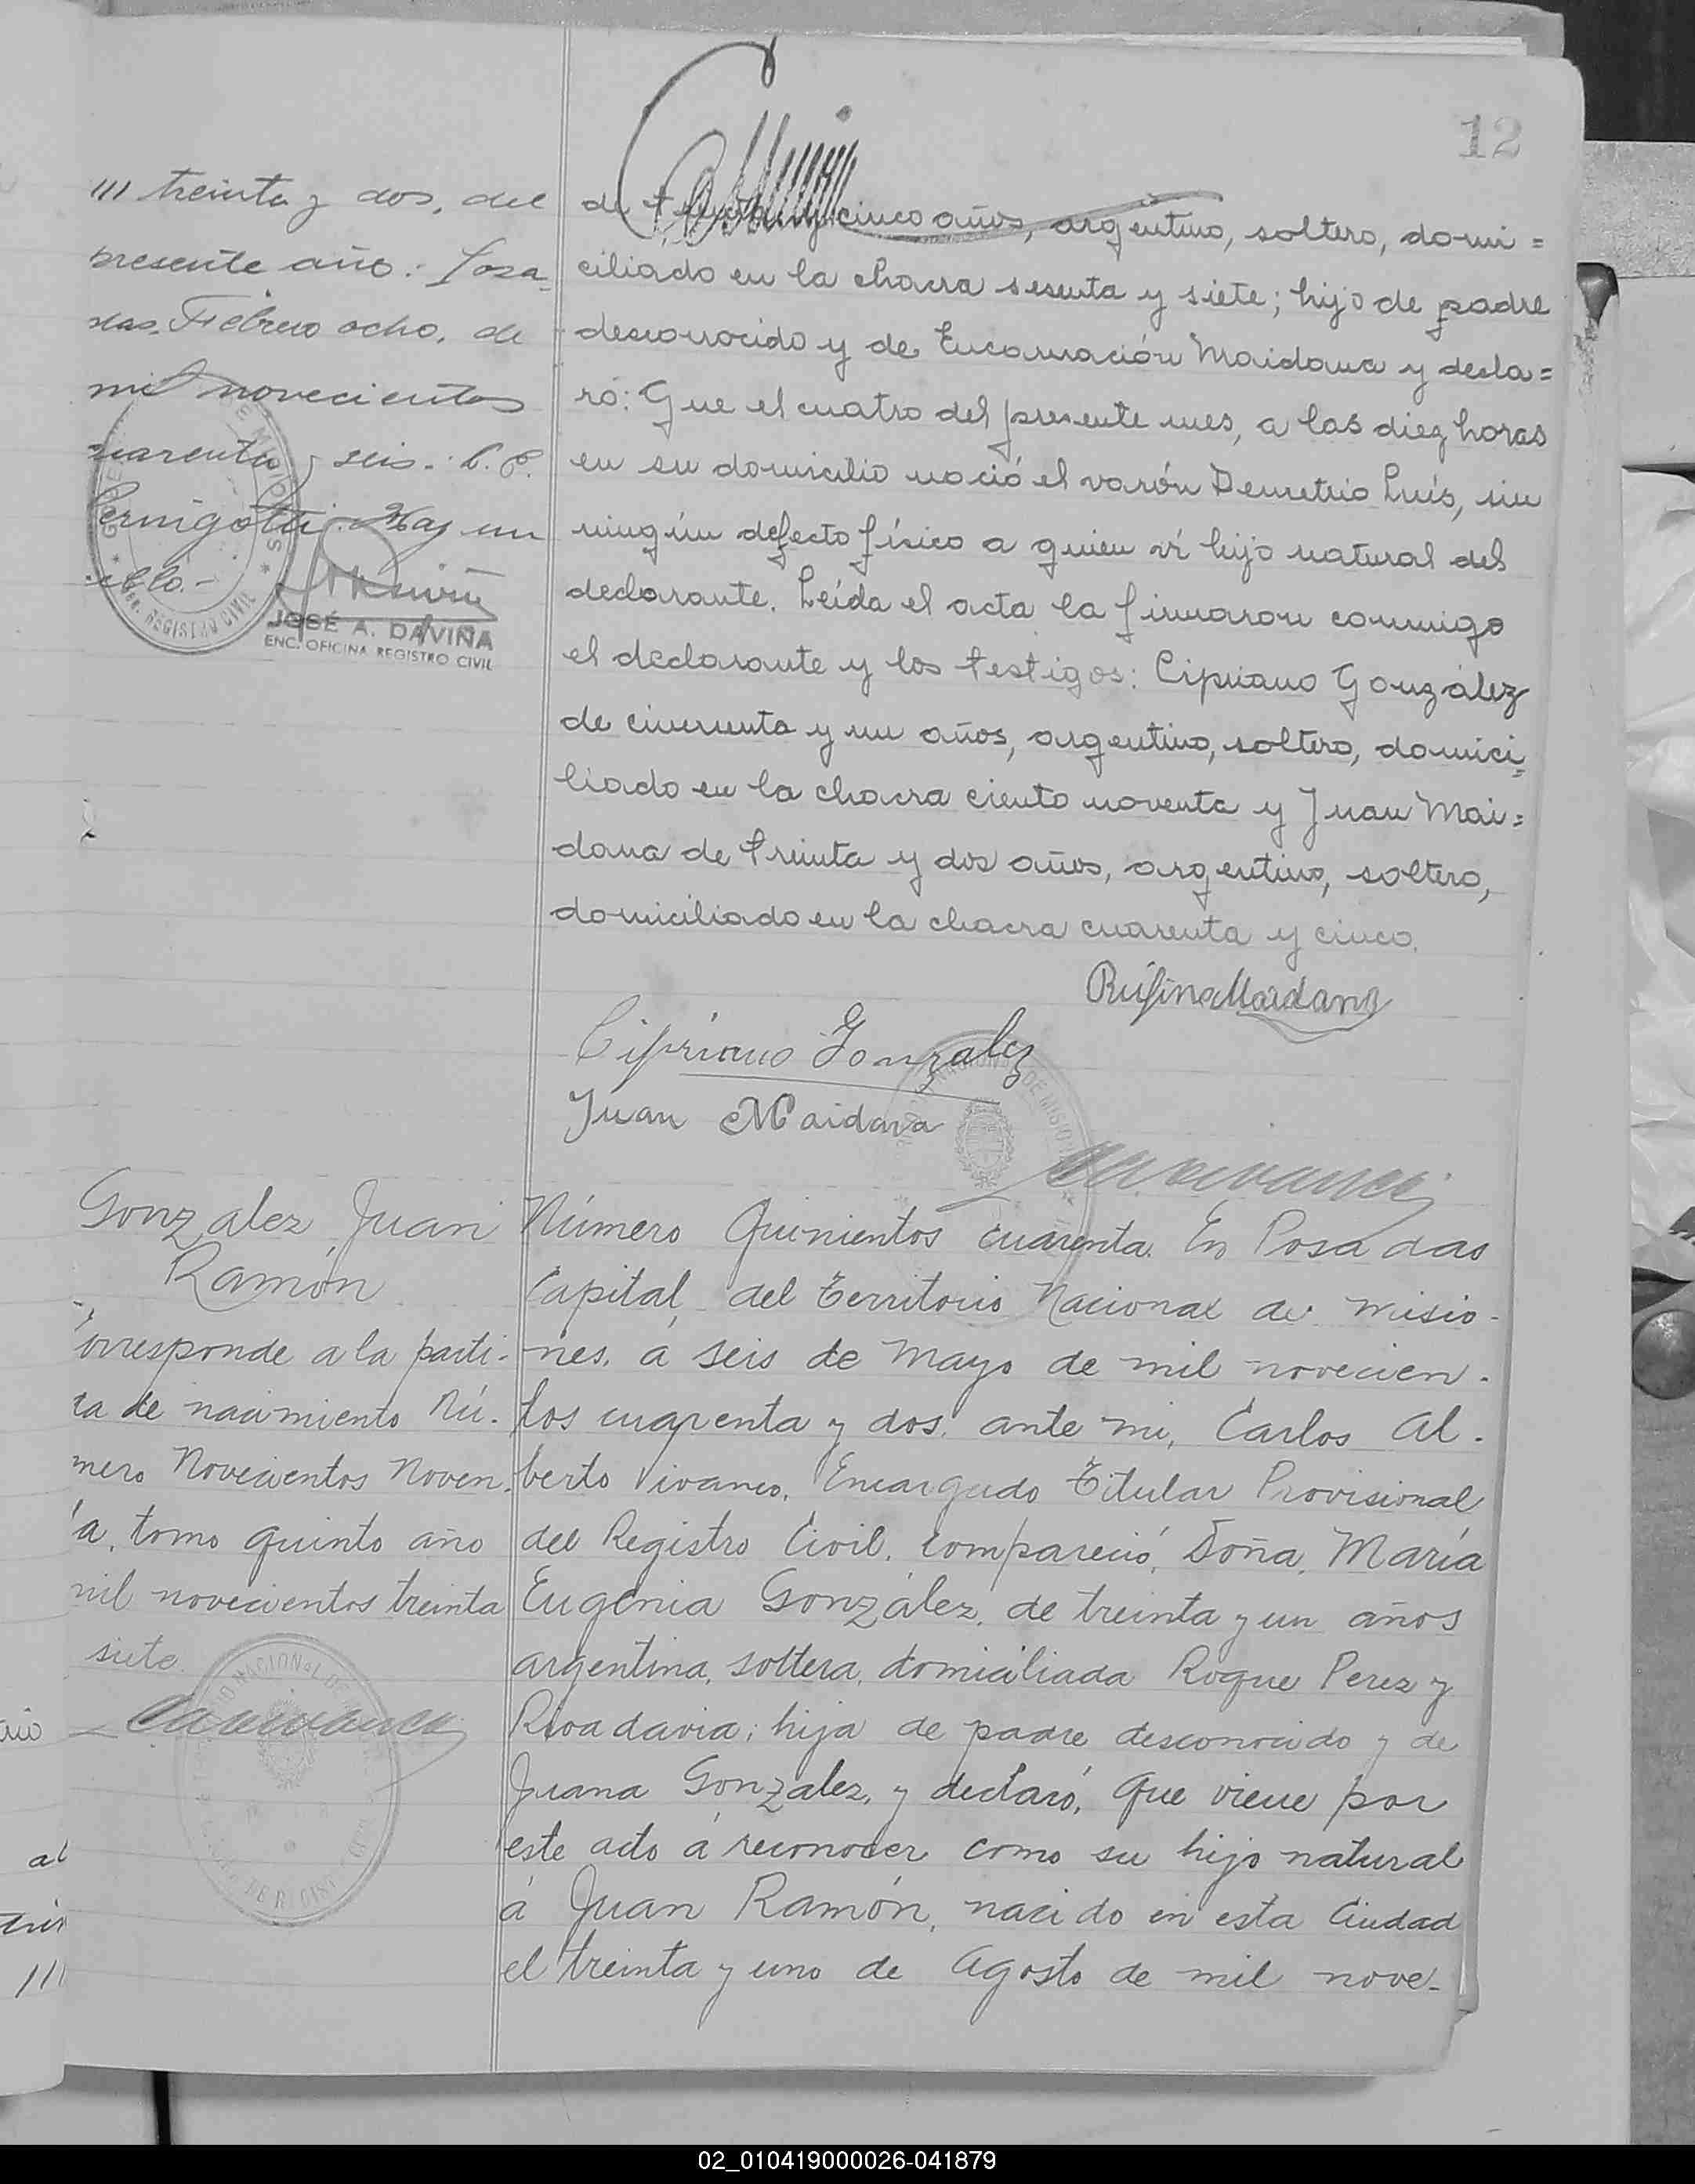 12
/// treinta y dos, del
presente año: Posa-
das, Febrero ocho, de
mil novecientos
cuarenta y seis.-: C. P.
Pernigotti. Hay un
sello.-
JOSÉ A. DAVIÑA
ENC. OFICINA REGISTRO CIVIL
de y cinco años, argentino, soltero, domi=
ciliado en la chacra sesenta y siete; hijo de padre
desconocido y de Encarnación Maidana y decla=
ró: Que el cuatro del presente mes, a las diez horas
en su domicilio nació el varón Demetrio Luís, sin
ningún defecto físico a quien ví hijo natural del
declarante. Leída el acta la firmaron conmigo
el declarante y los testigos: Cipriano González
de cincuenta y un años, argentino, soltero, domici=
liado en la chacra ciento noventa y Juan Mai=
dana de treinta y dos años, argentino, soltero,
domiciliado en la chacra cuarenta y cinco.
Rufino Maidana
Cipriano Gonzalez
Juan Maidana
Gonzalez, Juan
Ramón
orresponde a la parti-
ta de nacimiento Nú-
mero Novecientos Noven-
a, tomo quinto año
mil novecientos treinta
siete.
Número Quinientos cuarenta. En Posadas
Capital, del Territorio Nacional de Misio-
nes, á seis de Mayo de mil novecien-
tos cuarenta y dos, ante mi, Carlos Al-
berto Vivanco, Encargado Titular Provisional
del Registro Civil, compareció, Doña, María
Eugenia González, de treinta y un años
argentina, soltera, domiciliada Roque Perez y
Rivadavia; hija de padre desconocido y de
Juana Gonzalez, y declaró, Que viene por
este acto á reconocer como su hijo natural
á Juan Ramón, nacido en esta Ciudad
el treinta y uno de Agosto de mil nove-
02_010419000026-041879